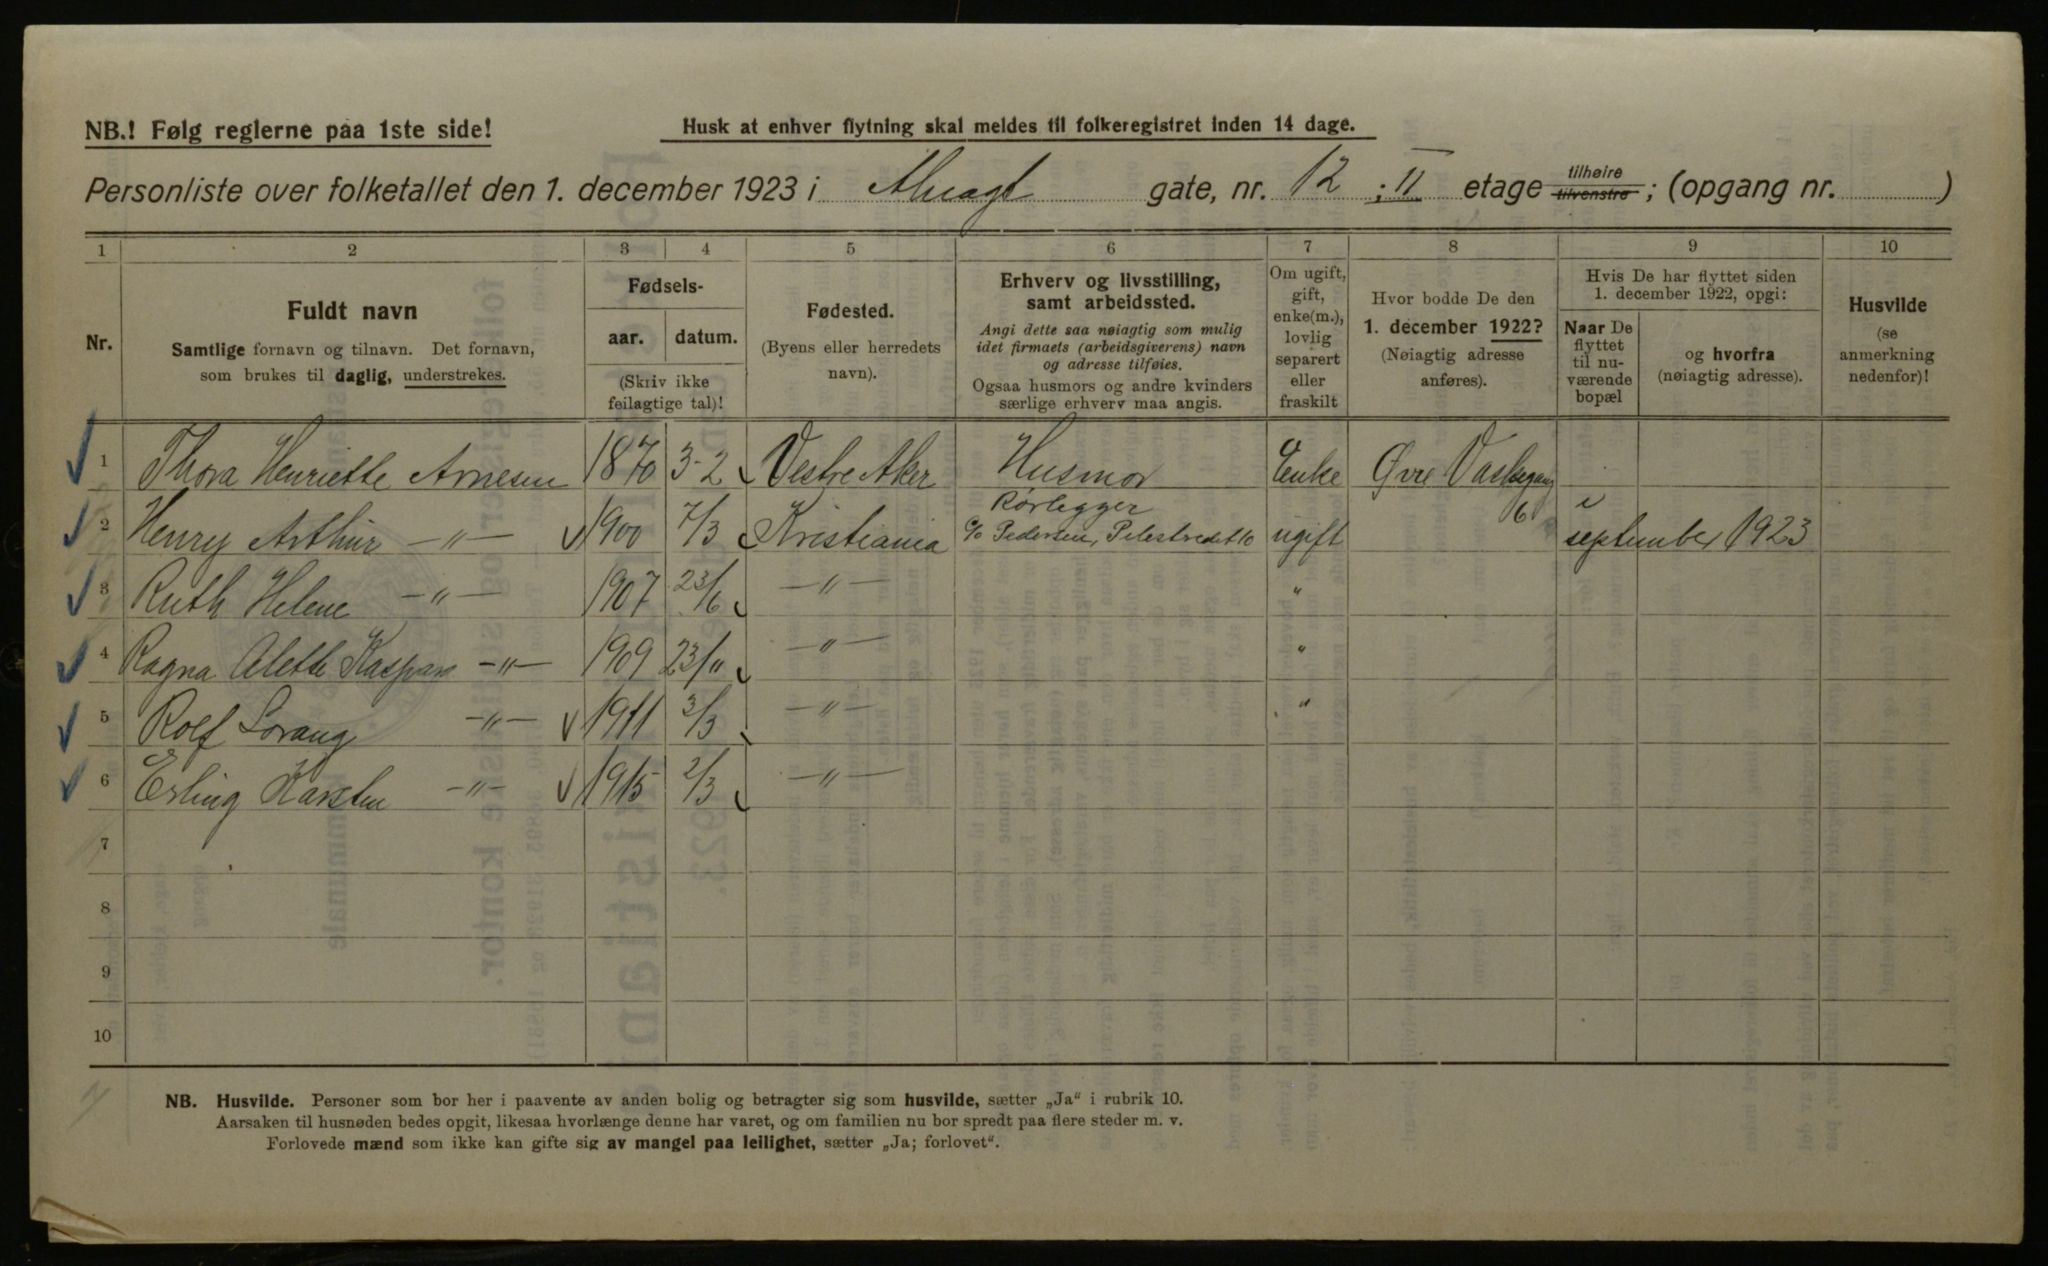 NB.! Følg reglerne paa 1ste side!
Husk at enhver flytning skal meldes til folkeregistret inden 14 dage.
Personliste over folketallet den 1. december 1923 i gate, nr. 12 ; II etage tilhøire tilvenstre ; (opgang nr. )
1 2 3 4 5 6 7 8 9 10
Nr.
Fuldt navn
Samtlige fornavn og tilnavn. Det fornavn,
som brukes til daglig, understrekes.
Fødsels-
aar. datum.
(Skriv ikke
feilagtige tal)!
Fødested.
(Byens eller herredets
navn).
Erhverv og livsstilling,
samt arbeidssted.
Angi dette saa nøiagtig som mulig
idet firmaets (arbeidsgiverens) navn
og adresse tilføies.
Ogsaa husmors og andre kvinders
særlige erhverv maa angis.
Om ugift,
gift,
enke(m.),
lovlig
separert
eller
fraskilt
Hvor bodde De den
1. december 1922?
(Nøiagtig adresse
anføres).
Hvis De har flyttet siden
1. december 1922, opgi:
Naar De
flyttet
til nu-
værende
bopæl
og hvorfra
(nøiagtig adresse).
Husvilde
(se
anmerkning
nedenfor)!
1 Thora Henriette Arnesen 1870 3-2 Vestre Aker Husmor Enke Øvre Vaskegang 6
2 Henry Arthur -"- 1900 7/3 Kristiania Rørlegger
c/o Pedersen, Pilestredet 10 ugift i september 1923
3 Ruth Helene -"- 1907 23/6 -"- "
4 Ragna Alette Kaspara -"- 1909 23/11 -"- "
5 Rolf Lorang -"- 1911 3/3 -"- "
6 Erling Karsten -"- 1915 2/3 -"-
7
8
9
10
NB. Husvilde. Personer som bor her i paavente av anden bolig og betragter sig som husvilde, sætter „Ja" i rubrik 10.
Aarsaken til husnøden bedes opgit, likesaa hvorlænge denne har varet, og om familien nu bor spredt paa flere steder m. v.
Forlovede mænd som ikke kan gifte sig av mangel paa leilighet, sætter „Ja; forlovet".